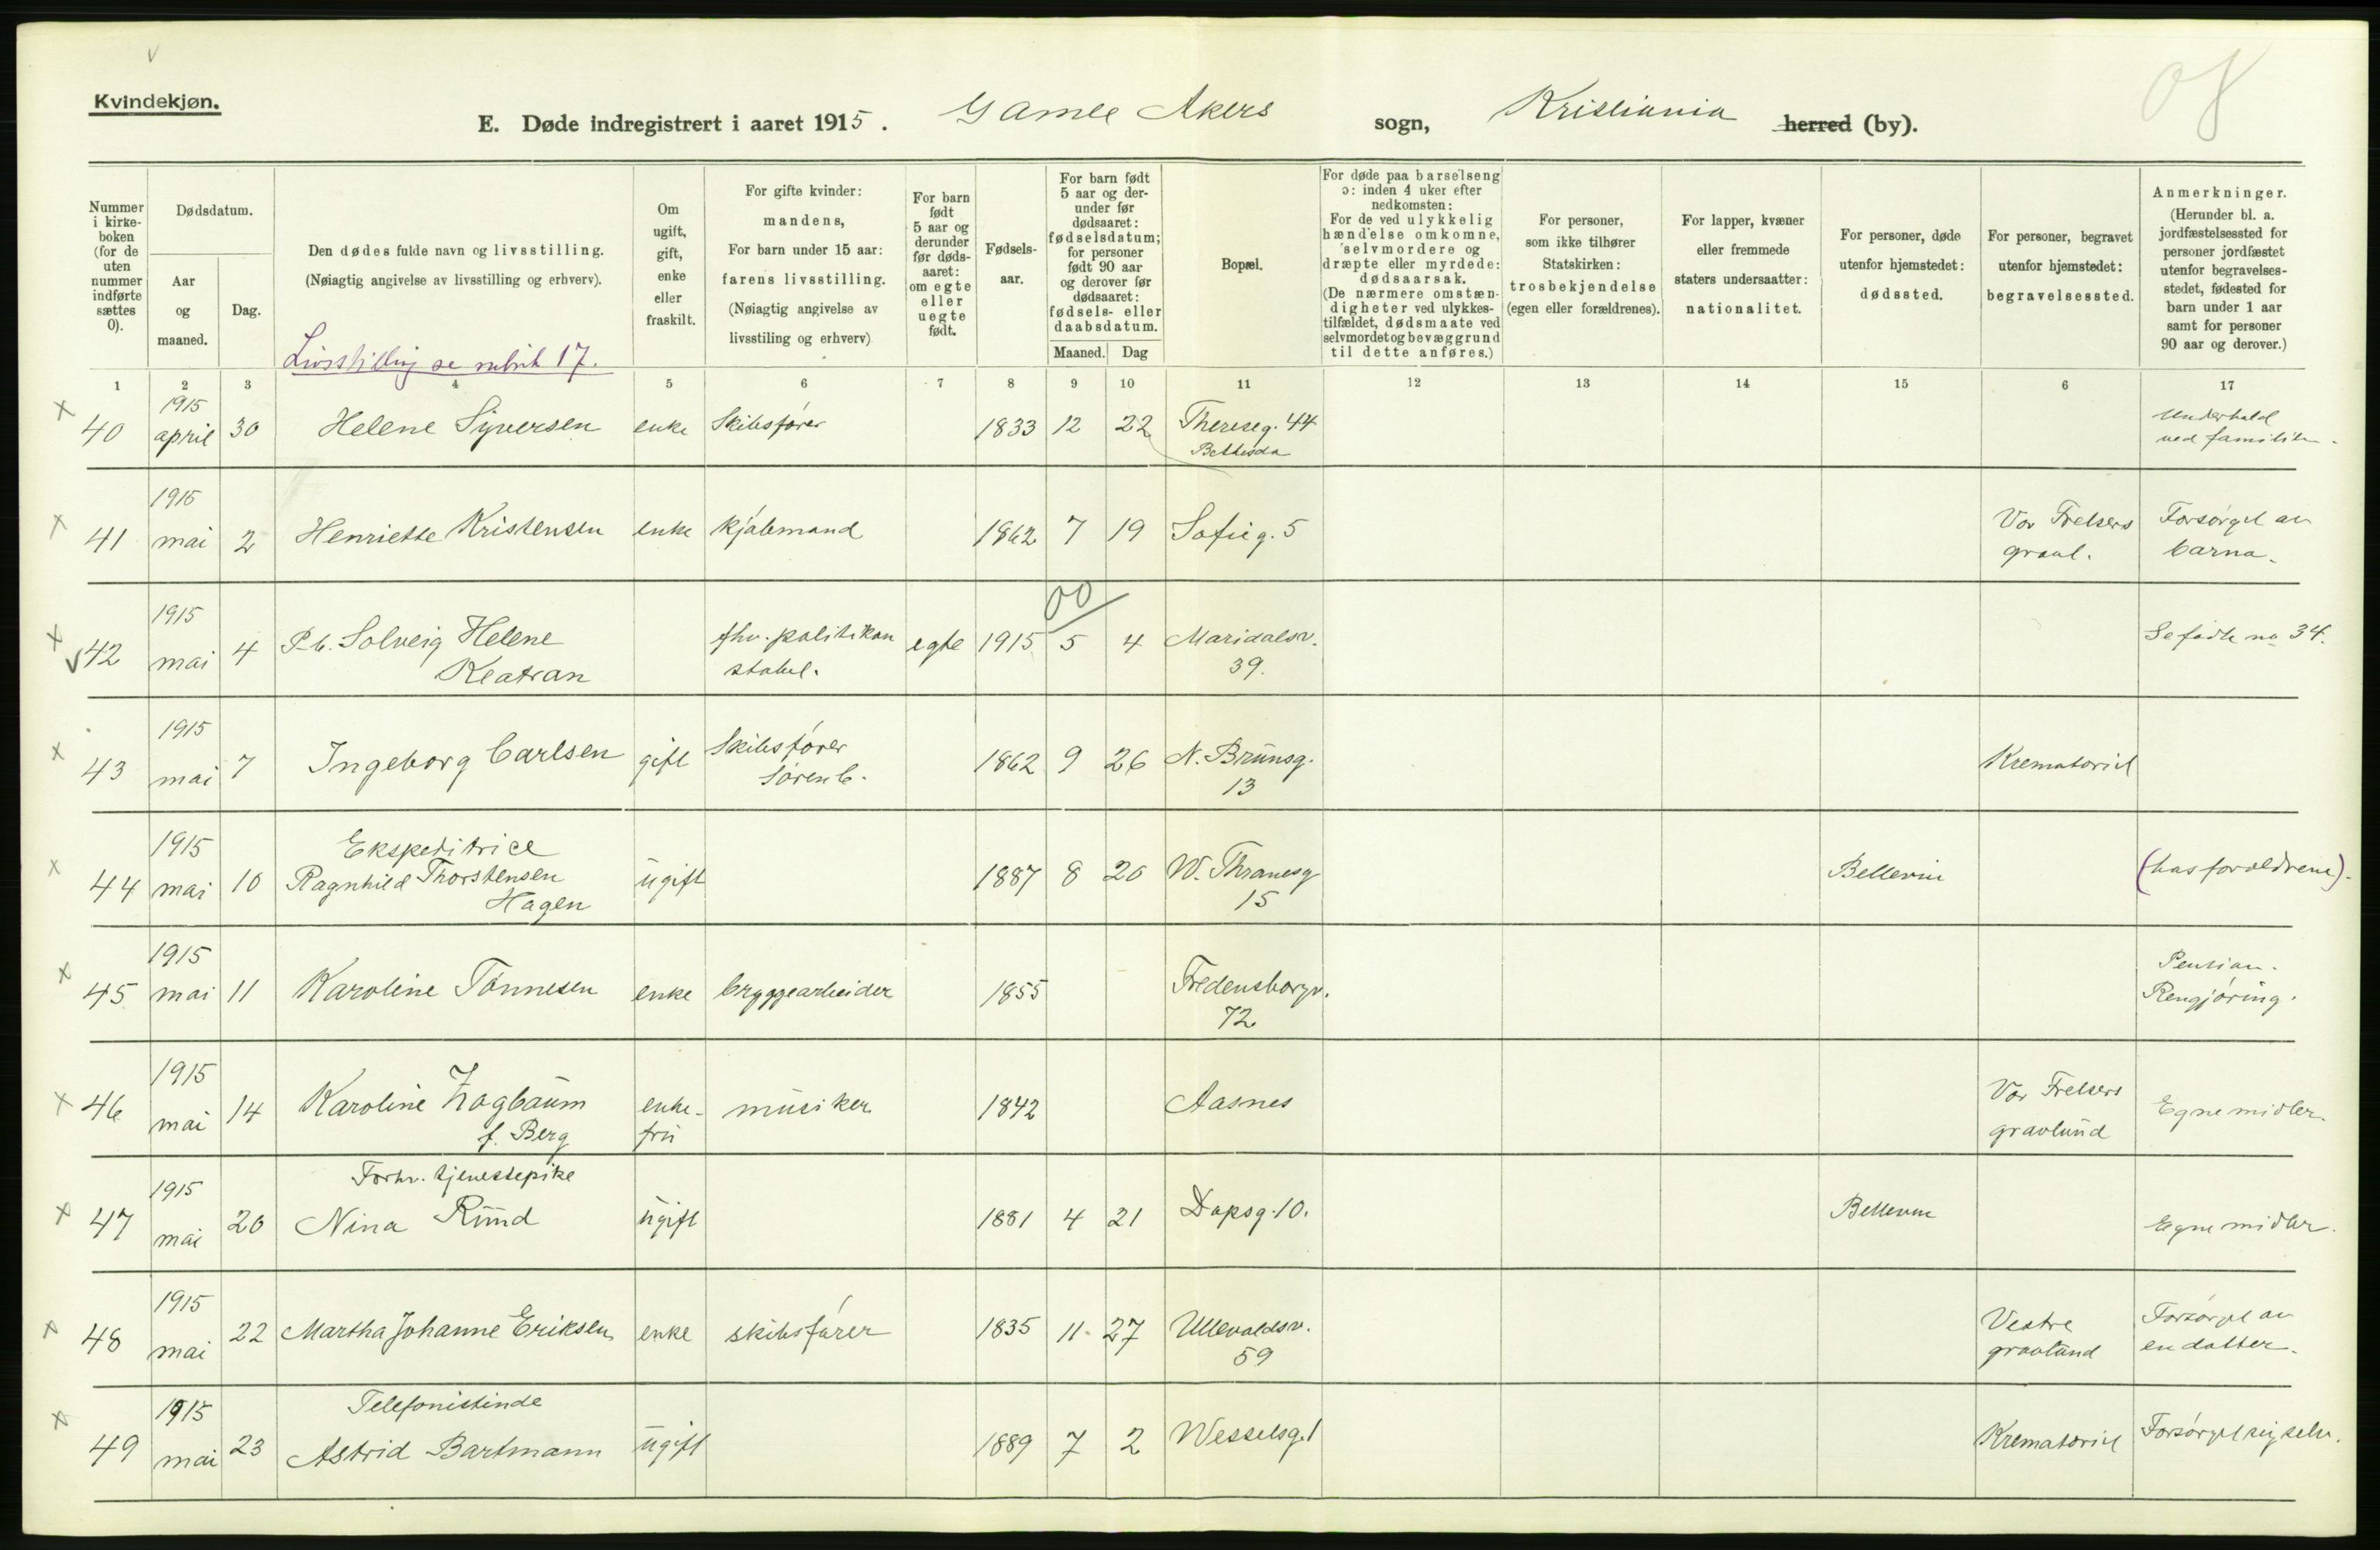 08
Kvindekjøn.
E. Døde indregistrert i aaret 1915. Gamle Akers sogn, Kristiania herred (by).
Nummer i kirke-boken (for de uten nummer indførte sættes 0).
Dødsdatum.
Aar og maaned.
Dag.
Den dødes fulde navn og livsstilling.
(Nøiagtig angivelse av livsstilling og erhverv).
Livsstilling se rubrik 17.
Om ugift, gift, enke eller fraskilt.
For gifte kvinder: mandens,
For barn under 15 aar: farens livsstilling.
(Nøiagtig angivelse av livsstiling og erhverv)
For barn født 5 aar og derunder før døds-aaret: om egte eller uegte født.
Fødsels-aar.
For barn født 5 aar og der-under før dødsaaret: fødselsdatum; for personer født 90 aar og derover før dødsaaret: fødsels- eller daabsdatum.
Maaned. Dag
Bopæl.
For døde paa barselseng ɔ: inden 4 uker efter nedkomsten: For de ved ulykkelig hændelse omkomne, selvmordere og dræpte eller myrdede: dødsaarsak. (De nærmere omstæn-digheter ved ulykkes-tilfældet, dødsmaate ved selvmordet og bevæggrund til dette anføres.)
For personer, som ikke tilhører Statskirken: trosbekjendelse (egen eller forældrenes).
For lapper, kvæner eller fremmede staters undersaatter: nationalitet.
For personer, døde utenfor hjemstedet: dødssted.
For personer, begravet utenfor hjemstedet: begravelsessted.
Anmerkninger. (Herunder bl. a. jordfæstelsessted for personer jordfæstet utenfor begravelses-stedet, fødested for barn under 1 aar samt for personer 90 aar og derover.)
1 2 3 4 5 6 7 8 9 10 11 12 13 14 15 6 17
40 1915 april 30 Helene Syversen enke Skibsfører 1833 12 22 Thereseg. 44 Bethesda Underhold ved familien.
41 1915 mai 2 Henriette Kristensen enke kjøbmand 1862 7 19 Sofieg. 5 Vor Frelsers gravl. Forsørget av barna.
42 1915 mai 4 P.b. Solveig Helene Keatran fhv. politikonstabel. egte 1915 5 4 Maridalsv. 39. Se fødte no 34.
00
43 1915 mai 7 Ingeborg Carlsen gift Skibsfører Søren C. 1862 9 26 N. Brunsg. 13 Krematoriet
44 1915 mai 10 Ekspeditrice Ragnhild Thorstensen Hagen ugift 1887 8 20 W. Thranesg 15 Bellevue (hos forældrene).
45 1915 mai 11 Karoline Tønnesen enke bryggearbeider 1855 Fredensborgv. 72 Pension. Rengjøring.
46 1915 mai 14 Karoline Zogbaum f. Berg enke-fru musiker 1842 Aasnes Vor Frelsers gravlund Egne midler.
47 1915 mai 20 Forhv. tjenestepike Nina Rund ugift 1881 4 21 Dopsg. 10. Bellevue Egne midler.
48 1915 mai 22 Martha Johanne Eriksen enke skibsfører 1835 11 27 Ullevoldsv. 59 Vestre gravlund Forsørget av en datter.
49 1915 mai 23 Telefonistinde Astrid Bartmann ugift 1889 7 2 Wesselsg. 1 Krematoriet Forsørget sig selv.